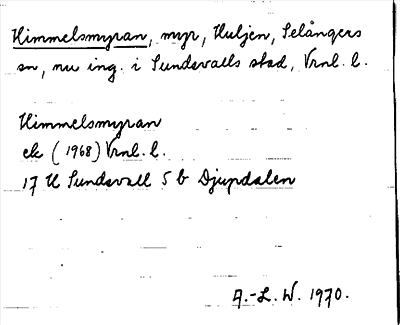 Himmelsmyran, myr, Huljen, Selångers
sn, nu ing. i Sundsvalls stad, Vrnl. l.
Himmelsmyran
ek (1968) Vrnl. l.
17 H Sundsvall 5 b Djupdalen
A.-L. W. 1970.